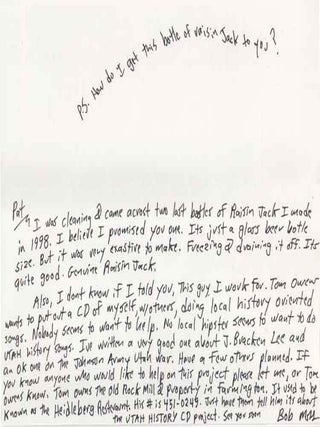 PS. How do I get this bottle of raisin Jack to you?
Pat,
I was cleaning & came acrost two last bottles of Raisin Jack I made
in 1998. I believe I promised you one. Its just a glass beer bottle
size. But it was very exastive to make. Freezing & draining it off. Its
quite good. Genuine Raisin Jack.
Also, I dont know if I told you, This guy I work for. Tom Owen
wants to put out a CD of myself, w/others, doing local history oriented
songs. Nobody seems to want to help. No local hipster seems to want to do
UTAH history songs. I've written a very good one about J. Bracken Lee and
an ok one on the Johnson Army Utah war. Have a few others planned. If
you know anyone who would like to help on this project please let me, or Tom
owens know. Tom owns the old Rock Mill & property in farmington. It used to be
known as the Heidleberg Restaurant. His # is 451-0249. Just have them tell him its about
the UTAH HISTORY CD project. See you soon Bob